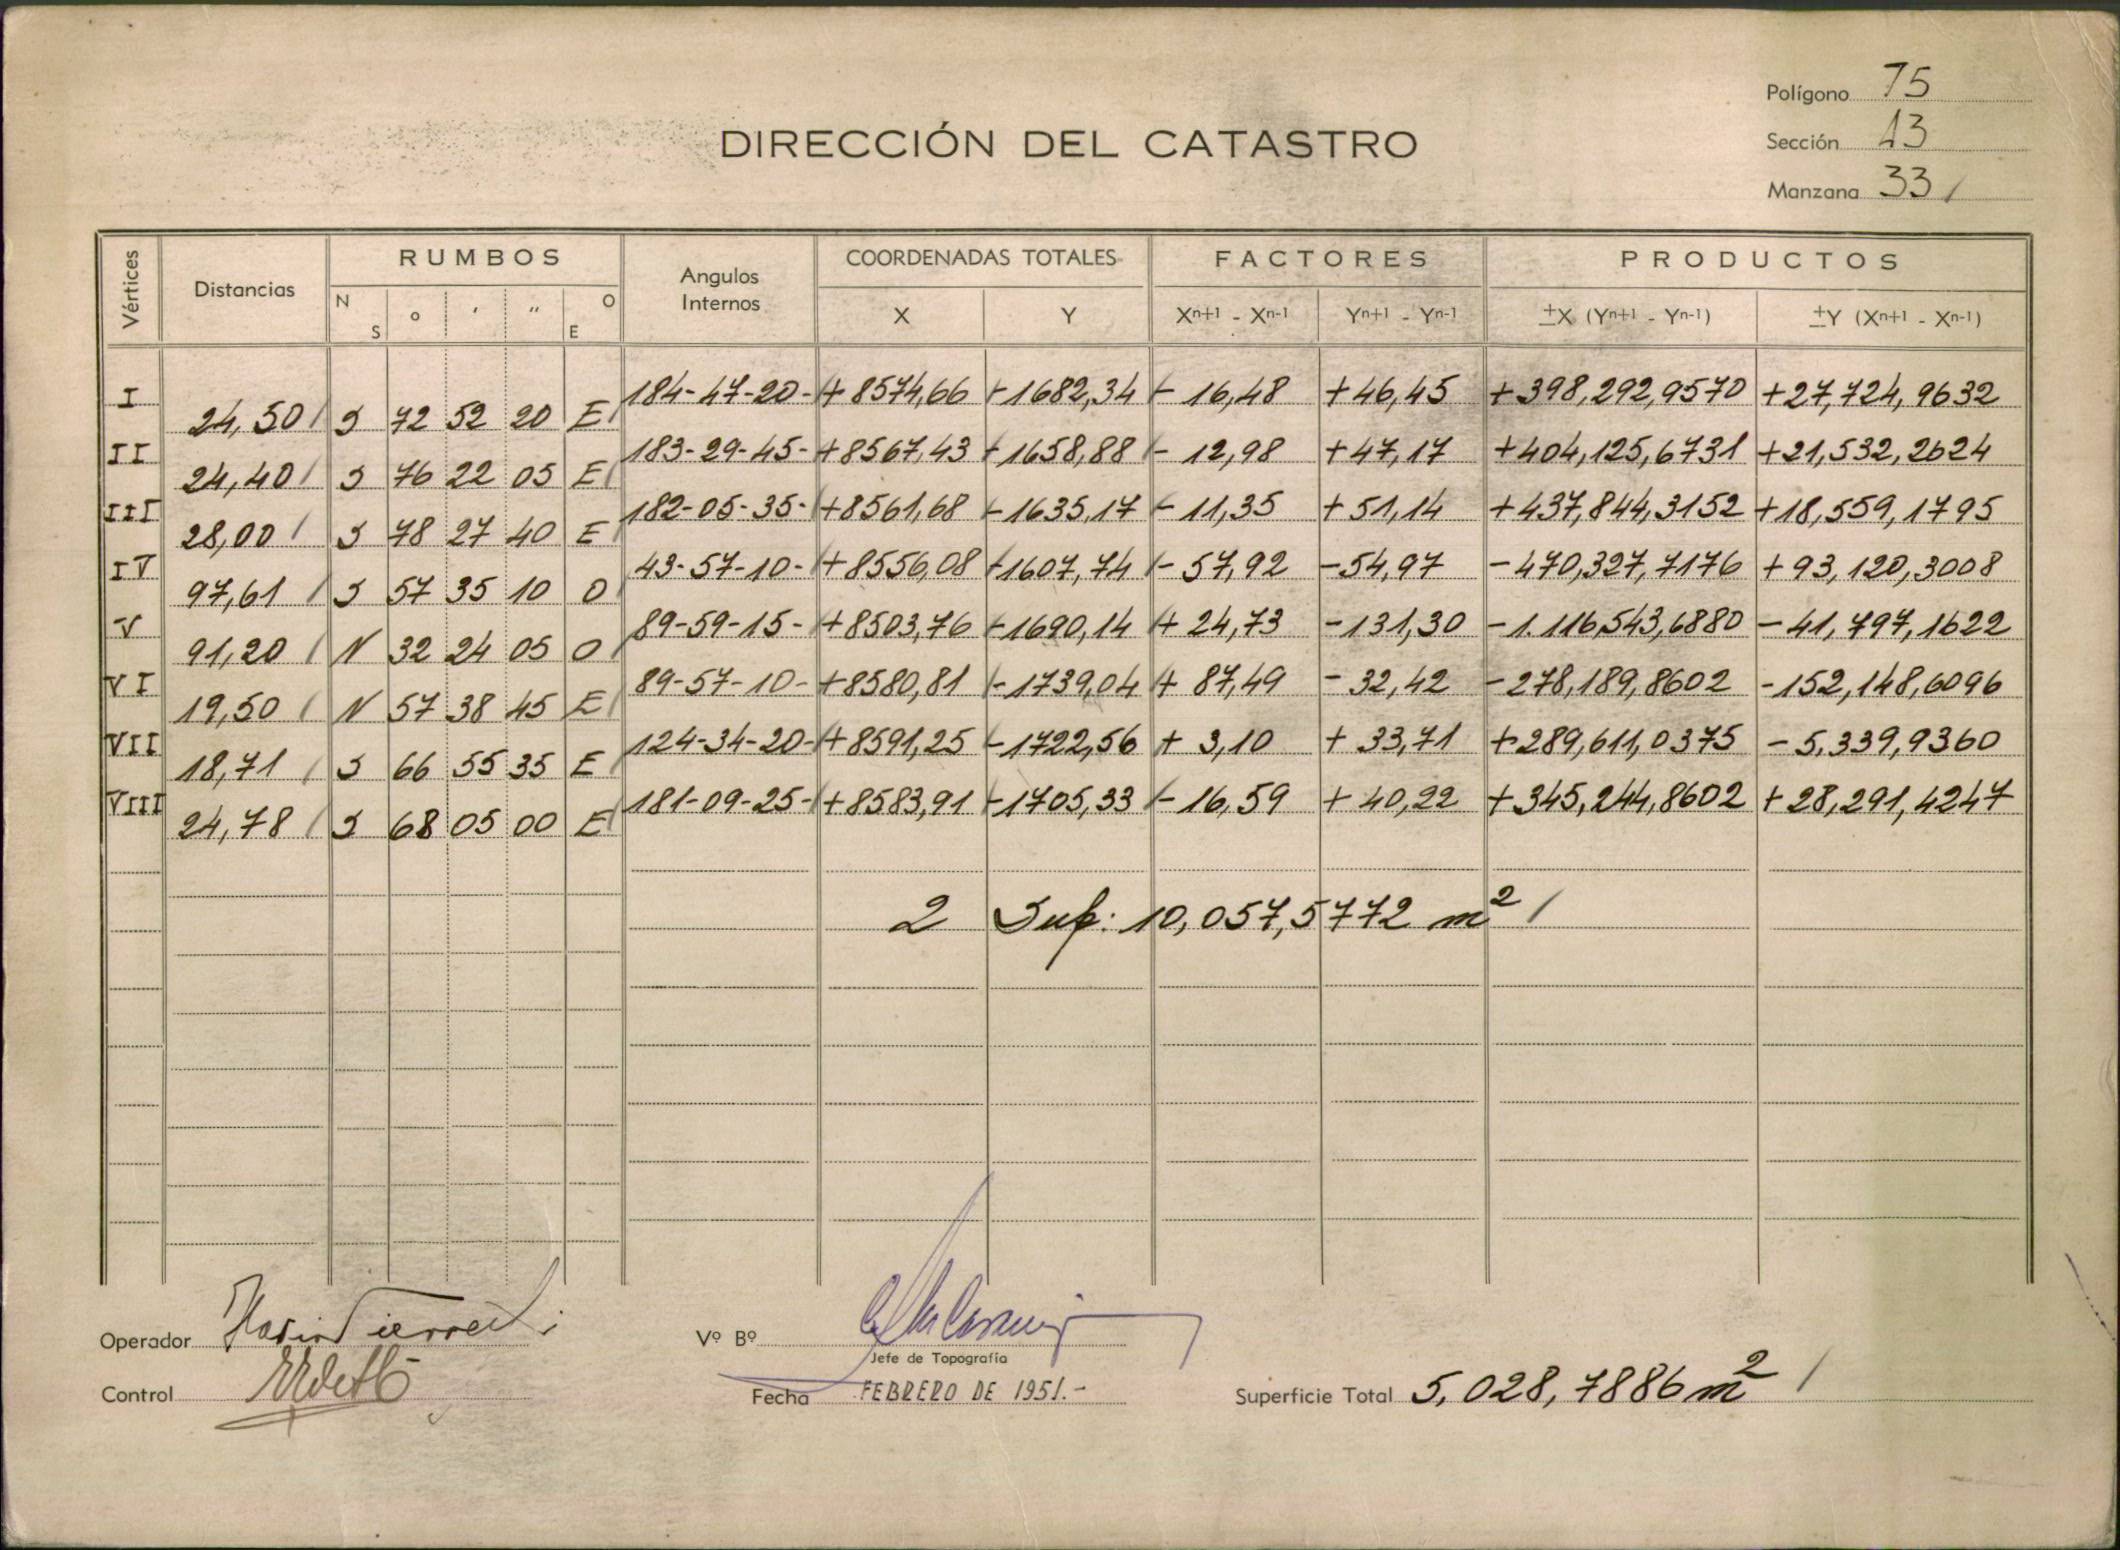 Polígono 75
DIRECCIÓN DEL CATASTRO
Sección 13
Manzana 33
Vértices Distancias RUMBOS Angulos Internos COORDENADAS TOTALES FACTORES PRODUCTOS
N S o ' '' O E X Y Xn+1 - Xn-1 Yn+1 - Yn-1 ±X (Yn+1 - Yn-1) ±Y (Xn+1 - Xn-1)
I 184-47-20- +8574,66 -1682,34 - 16,48 +46,45 +398,292,9570 +27,724,9632
24,50 S 72 52 20 E
II 183-29-45- +8567,43 -1658,88 - 12,98 +47,17 +404,125,6731 +21,532,2624
24,40 S 76 22 05 E
III 182-05-35- +8561,68 -1635,17 - 11,35 +51,14 +437,844,3152 +18,559,1795
28,00 S 78 27 40 E
IV 43-57-10- +8556,08 -1607,74 - 57,92 -54,97 -470,327,7176 +93,120,3008
97,61 S 57 35 10 O
V 89-59-15- +8503,76 -1690,14 + 24,73 -131,30 -1.116,543,6880 -41,797,1622
91,20 N 32 24 05 O
VI 89-57-10- +8580,81 -1739,04 + 87,49 - 32,42 -278,189,8602 -152,148,6096
19,50 N 57 38 45 E
VII 124-34-20- +8591,25 -1722,56 + 3,10 + 33,71 +289,611,0375 - 5,339,9360
18,71 S 66 55 35 E
VIII 181-09-25- +8583,91 -1705,33 - 16,59 + 40,22 +345,244,8602 +28,291,4247
24,78 S 68 05 00 E
2 Sup: 10,057,5772 m²
Operador
Vº Bº
Jefe de Topografía
Control
Fecha FEBRERO DE 1951.-
Superficie Total 5,028,7886 m²